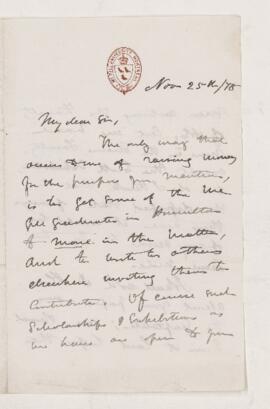 Nov 25th/78
My dear Sir,
The only way that
occurs to me of raising money
for the purpose you mention,
is to get some of the Mc
Gill Graduates in Hamilton
to move in the matter,
and to write to others
elsewhere inviting them to
contribute. Of course such
Scholarships & Exhibitions as
we have are open to your